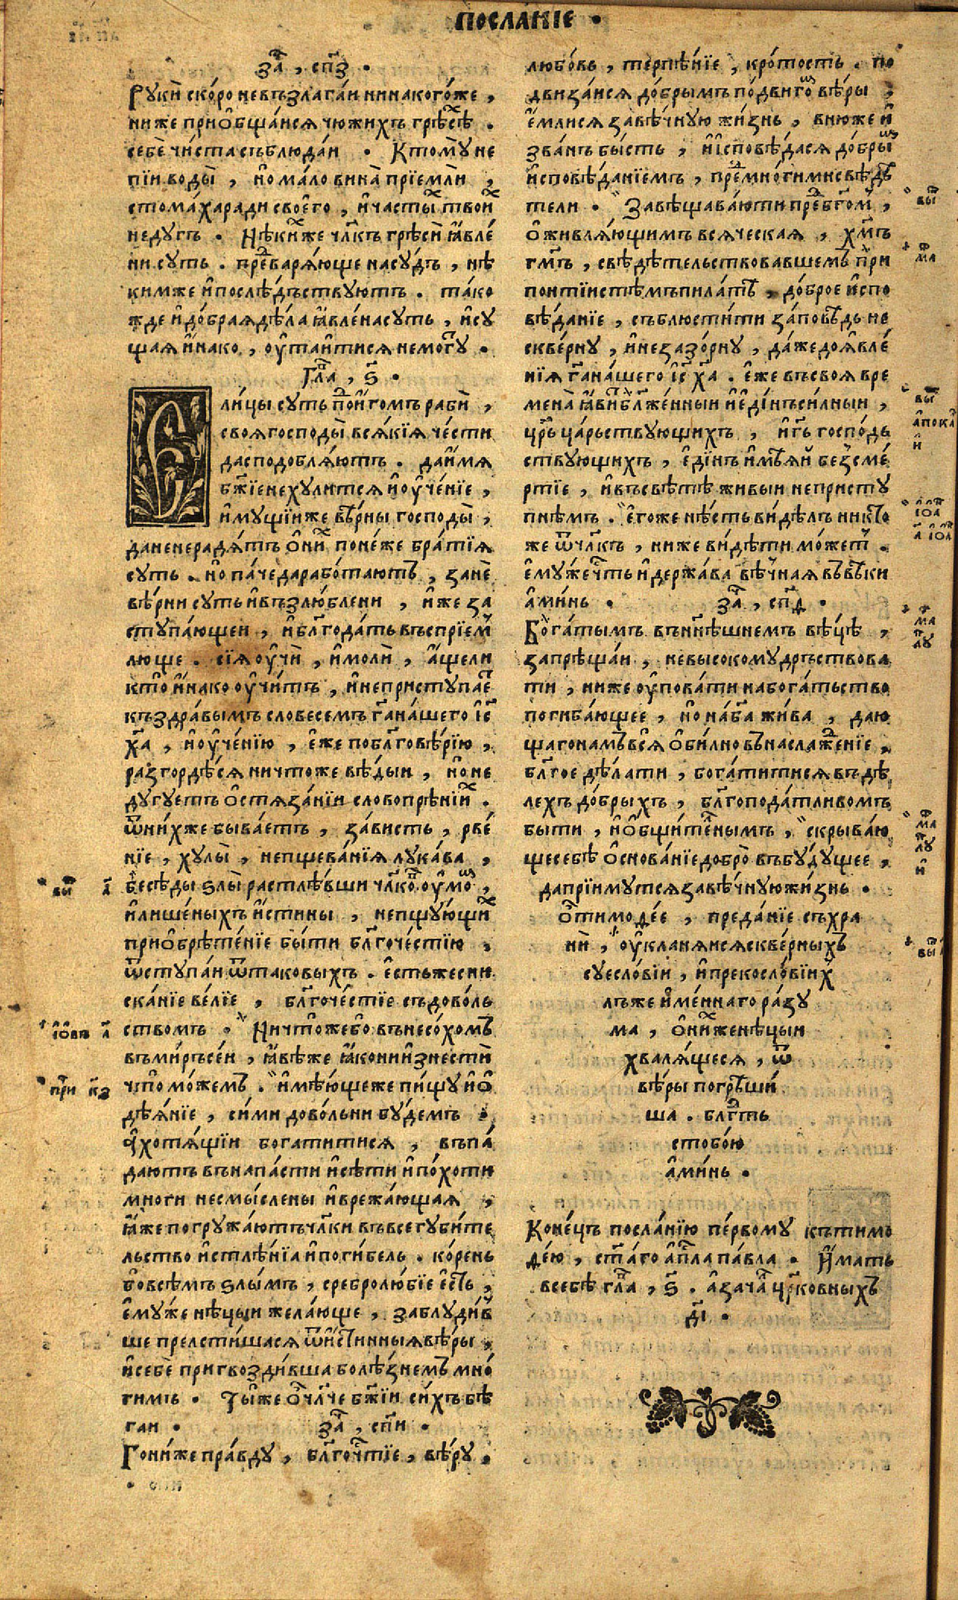 ПОСЛАНІЕ ·
за҃ , сп҃з ·
Руки́ ско́ро невъзлага́и нинакого́же ,
ниже приѻбща́исѧ чюжихъ грѣсѣ ·
себѐ чи́ста съблюда́и · Ктому̀ не
пі́и воды̀ , но̀ ма́ло вина̀ прїемли ,
стома́ха ради своего̀ , и҆ ча́сты твои́х
неду́гъ · Нѣ́киже чл҃къ грѣсѝ ꙗвле́
ни суть · пре́варѧюще насу́дъ , нѣ
кимже и҆ послѣ́дъствуютъ · та́ко
жде и҆ до́браѧ дѣла̀ ꙗвле́на суть , и҆ су
щаѧ и҆на́ко , оу҆таи́тисѧ немо́гу ·
Гла҃ , ѕ҃ ·
Е
ли́цы суть под и́гомъ рабѝ ,
своѧ госпо́ды всѧ́кїѧ че́сти
да сподоблѧ́ютъ · да и҆́мѧ
бж҃їе не ху́литсѧ и҆ оу҆че́нїе ,
и҆му́щїиже вѣ́рны господы̀ ,
да не нерадѧ́тъ ѻ҆ни́х поне́же бра́тїѧ
суть · но̀ па́че да рабо́таютъ , занѐ
вѣ́рни суть и҆ възлю́блени , и҆́же за
ступа́ющеи , и҆ блг҃ода́ть въспрїе́м
люще · сїѧ̀ оу҆чѝ , и҆ молѝ , а҆́щели
кто̀ и҆на́ко оу҆чи́тъ , и҆ неприступа́е
къ здра́вымъ словесе́мъ га҃ на́шего іс҃
ха҃ , и҆ оу҆че́нїю , е҆́же по блг҃овѣ́рїю ,
разгордѣ́сѧ ничто́же вѣ́дыи , но̀ не
ду́гуетъ ѻ҆ стѧза́нїи словопрѣ́нїи ·
ѿ ни́хже быва́етъ , за́висть , рве́
нїе , хулы̀ , непщева́нїѧ лука́ва ,
бесѣ́ды ѕлы̀ растлѣ́вши чл҃ко оу҆мо́ ,
и҆ лише́ныхъ и҆́стины , непщу́ющи
приѻбрѣте́нїе бы́ти блг҃оче́стїю ,
ѿступа́и ѿ таковы́хъ · е҆́стьже сни
ска́нїе ве́лїе , блг҃оче́стїе съ дово́ль
ствомъ · Ничто́жебо̀ вънесо́хомъ
въ ми́ръ се́и , ꙗ҆вѣ́же ꙗ҆ко ни и҆знестѝ
что̀ мо́жемъ · и҆мѣ́юще же пи́щу и҆ ѻ҆
дѣѧ́нїе , си́ми дово́льни бу́демъ ·
а҆ хотѧ́щїи богати́тисѧ , въпа́
даютъ въ напа́сти и҆ сѣ́ти и҆ по́хоти
мно́ги несмы́слены и҆ врежа́ющаѧ ,
ꙗ҆́же погружа́ютъ чл҃ки въ всегуби́те
льство и҆ стлѣ́нїа и҆ поги́бель · ко́рень
бо всѣ́мъ ѕлы́мъ , сребролю́бїе е҆́сть ,
е҆му́же нѣ́цыи жела́юще , заблуди́в
ше прелсти́шасѧ ѿ и҆́стинныѧ вѣ́ры ,
и҆ себѐ пригвозди́вша болѣ́знемъ мно́
гимъ · Ты́же ѻ҆ чл҃че бж҃їи си́хъ бѣ
гаи · за҃ , сп҃и ·
Гони́же пра́вду , блг҃оче́тїе , вѣ́ру ,
любо́вь , терпѣ́нїе , кро́тость · по
двиза́исѧ до́брымъ по́двиго вѣ́ры ,
е҆́млисѧ за вѣ́чную жи́знь , в нюже и҆
зва́нъ бы́сть , и҆ и҆сповѣ́дасѧ до́бры
и҆сповѣ́данїемъ , пре мно́гими свѣдѣ
тели · Завѣщава́ю ти пре бг҃ом ,
ѻ҆живлѧ́ющимъ всѧ́ческаѧ , хм҃ъ
гм҃ъ , свѣдѣ́тельствовавшемъ при
понтїистѣ́мъ пила́тѣ , до́брое и҆спо
вѣ́данїе , съблюсти́ти за́повѣдь не
скве́рну , и҆ незазо́рну , да́же до ꙗ҆вле́
нїѧ га҃ на́шего іс҃ ха҃ · е҆́же въ своѧ̀ вре
мена̀ ꙗ҆ви́т бл҃же́нныи и҆ е҆ди́нъ си́лныи ,
цр҃ь ца́рьствующихъ , и҆ гь҃ госпо́дь
ствующихъ , е҆ди́нъ и҆мѣ́ѧи безсме́
ртїе , и҆ въ свѣ́тѣ живы́и непристу
пнѣмъ · е҆го́же нѣ́сть ви́дѣлъ никто
же ѿ чл҃къ , ниже ви́дѣти мо́жет ·
е҆му́же че́ть и҆ держа́ва вѣ́чнаѧ въ вѣ́ки
а҆ми́нь · за҃ , сп҃д ·
Бога́тымъ въ ни́нѣшнемъ вѣ́цѣ ,
запрѣща́и , невысокому́дрьствова
ти , ниже оу҆пова́ти на бога́тьство
погиба́ющее , но̀ на ба҃ жи́ва , даю
щаго на́мъ всѧ̀ ѻ҆би́лно въ наслажде́нїе ,
блг҃ое дѣ́лати , богати́тисѧ въ дѣ́
лехъ до́брыхъ , блг҃опода́тливомъ
бы́ти , и҆ ѻ҆бщи́тенымъ , скрыва́ю
ще себѣ̀ ѻ҆снова́нїе добро̀ въ бу́дущее ,
да прїи́мутсѧ за вѣ́чную жи́знь ·
ѻ҆ тимоде́е , преда́нїе съхра
нѝ , оу҆кланѧ́исѧ скве́рныхъ
суесло́вїи , и҆ прекосло́вїих
лъже и҆ме́ннаго ра́зу
ма , ѻ҆ ни́хже нѣ́цыи
хва́лѧщесѧ , ѿ
вѣ́ры погрѣ́ши
ша · блг҃ть
с тобо́ю
а҆ми́нь ·
Коне́цъ посла́нїю пе́рвому къ тимо
де́ю , ст҃а́го а҆пл҃а па́вла · И҆́мать
в себѣ̀ гла҃ , ѕ҃ · а҆ зача́ла цр҃ко́вныхъ
д҃і ·
вы
ма
вы
а҆пока
и҃
і҆ѻа
а҃ і҆ѻа
ма
лу
ма
лу
и҃
вы
вы а҃
і҆ѻвъ а҃
при к҃з